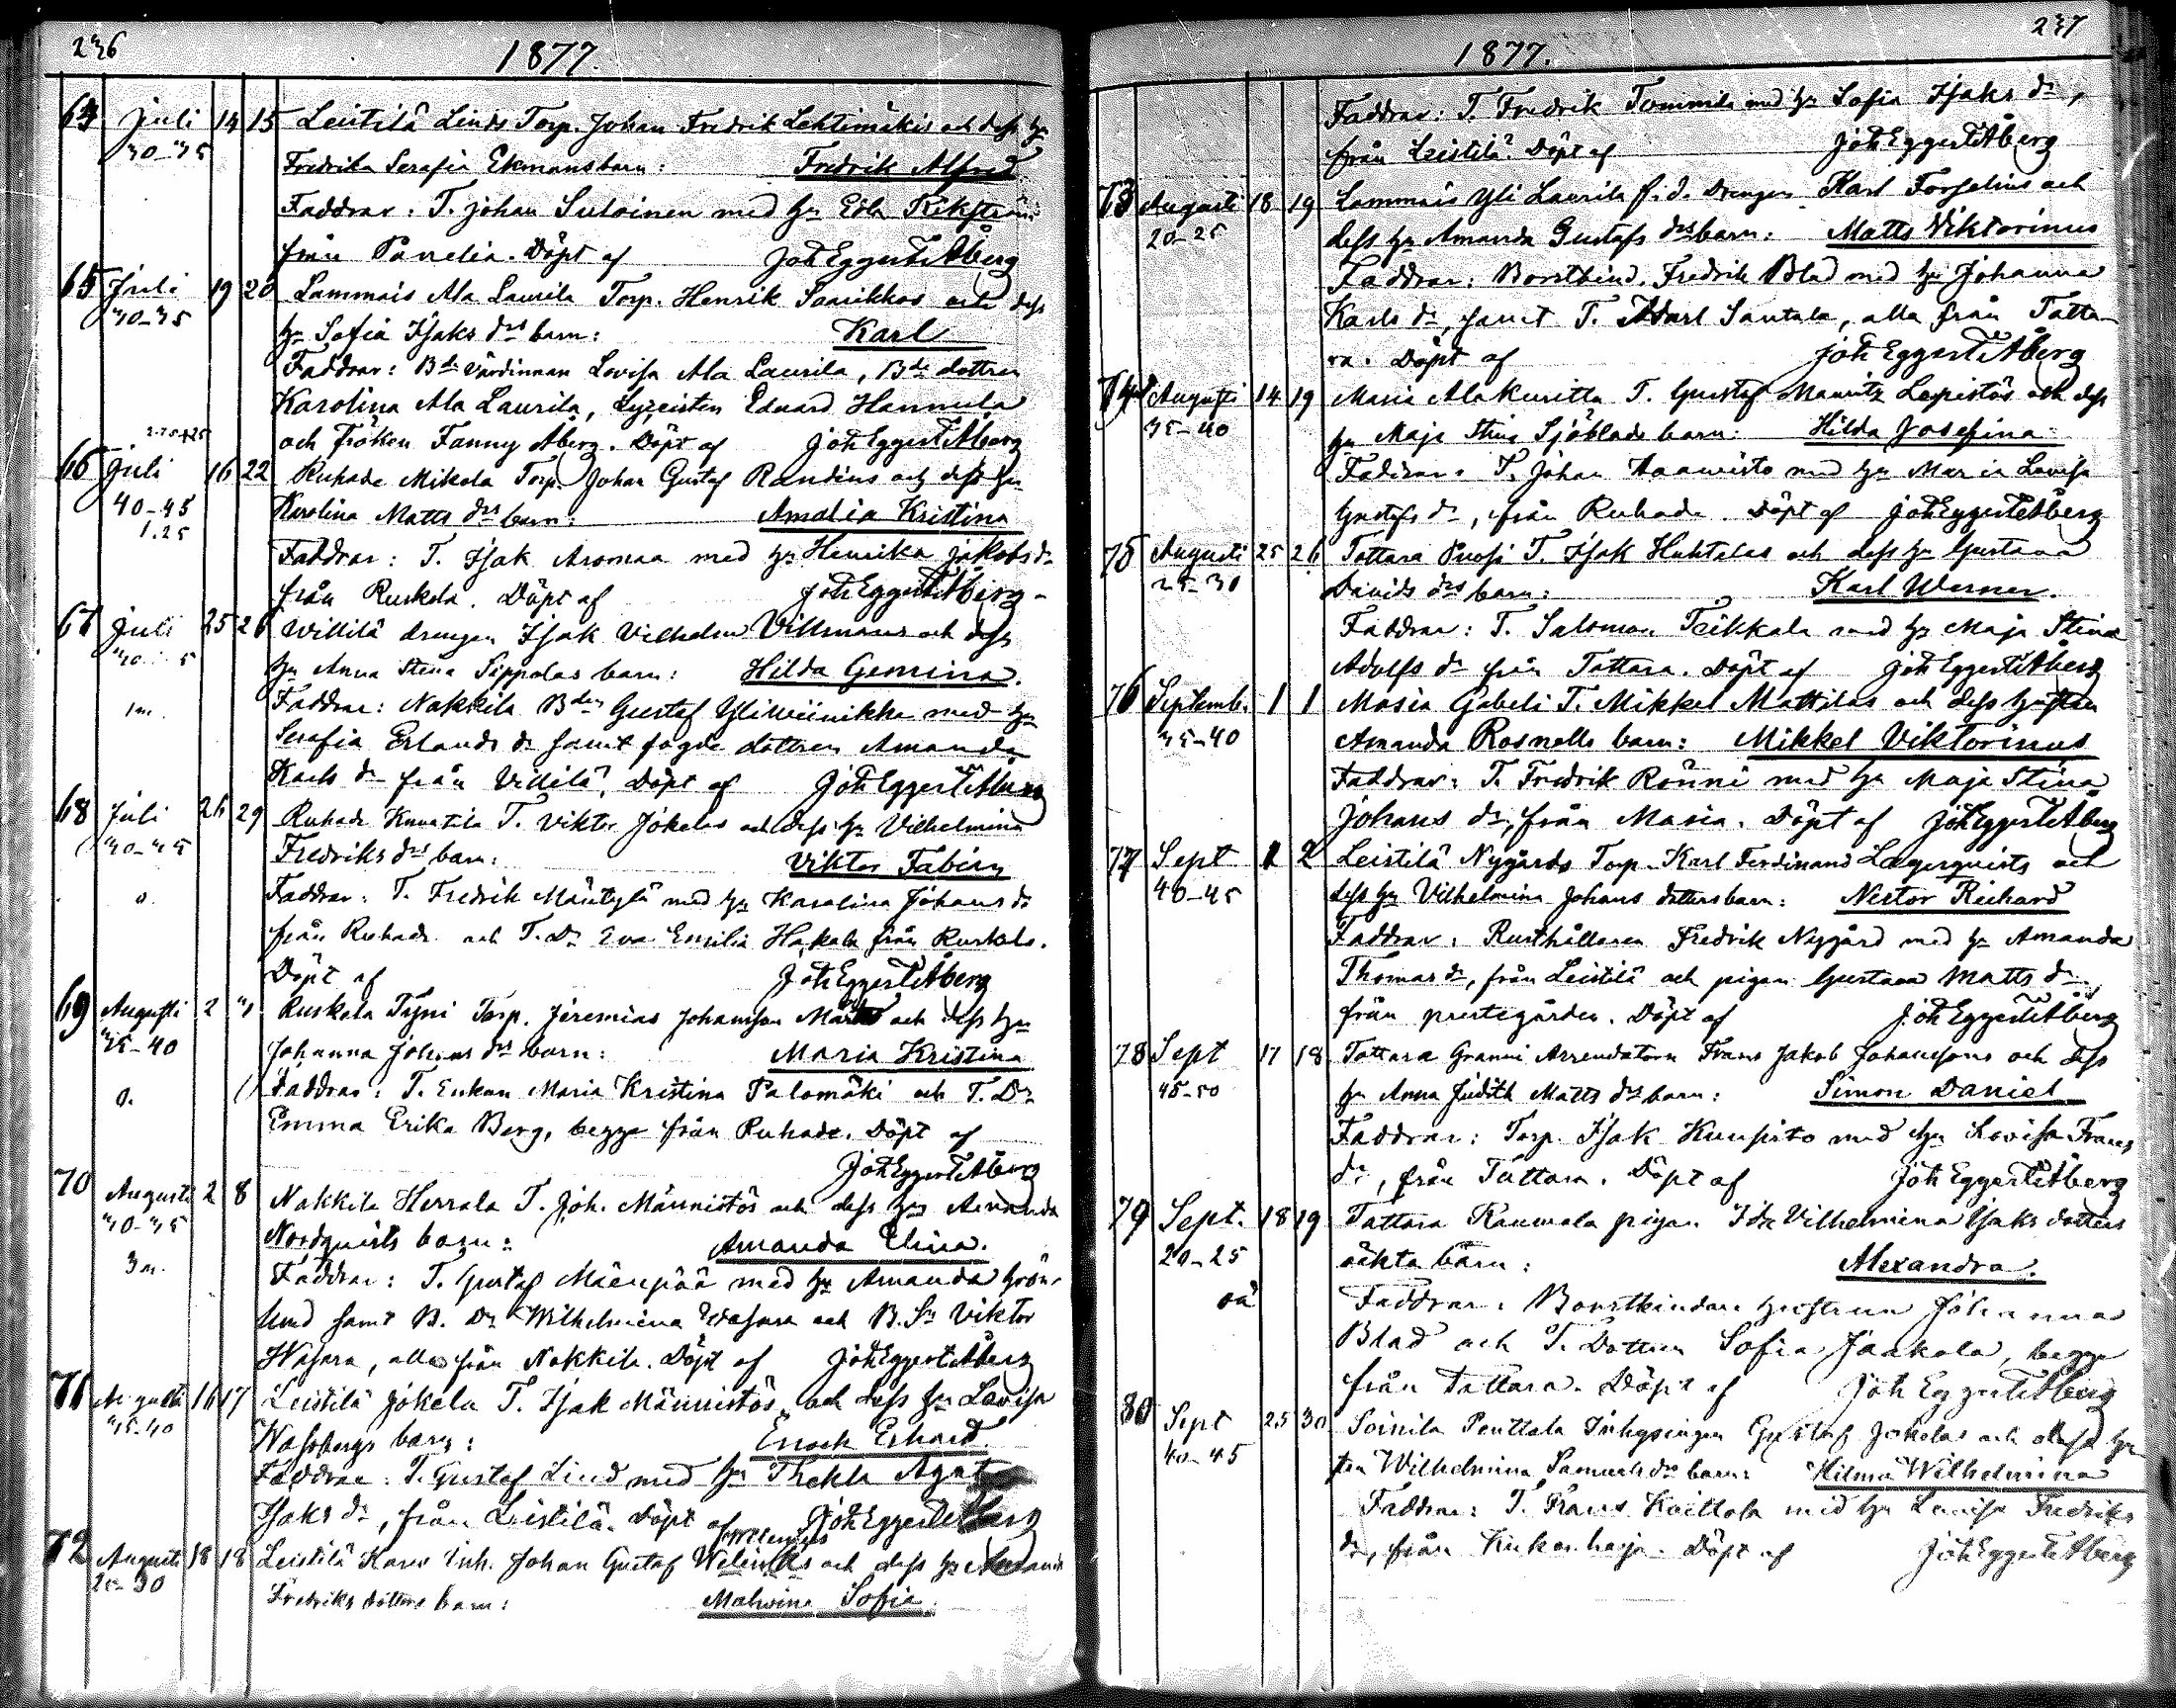 236
1877.
64 Juli 14 15 Leistilä Linds Torp. Johan Fredrik Lehtimäkis och dess hu
30-35 Fredrika Serafia Ekmans barn: Fredrik Alfred
Faddrar: T. Johan Suloinen med hu Edla
från Panelia. Döpt af Joh Eggert Åberg
65 Juli 19 20 Lammais Ala Laurila Torp. Henrik Saarikkos och dess
30-35 hu Sofia Isaks drs barn: Karl
Faddrar: Bde värdinnan Lovisa Ala Laurila, Bde dottren
Karolina Ala Laurila, Lyceisten Eduard Hannula
och Fröken Fanny Åberg. Döpt af Joh Eggert Åberg
66 Juli 16 22 Ruhade Mikola Torp. Johan Gustaf Randins och dess hu
40-45 Karolina Matts drs barn: Amalia Kristina
1.25
Faddrar: T. Isak Aromaa med hu Henrika Jakobs dr
från Ruskela. Döpt af Joh Eggert Åberg
67 Juli 25 26 Willilä drengen Isak Vilhelm Villmans och dess
hu Anna Stina Sippolas barn: Hilda Gemina.
Faddrar: Nakkila Bden Gustaf Yliwiinikka med hu
Serafia Erlands dr samt fogde dottren Amanda
Karls dr från Villilä. Döpt af Joh Eggert Åberg
68 Juli 26 29 Ruhade Knuutila T. Viktor Jokelas och dess hu Vilhelmina
Fredriks drs barn: Viktor Fabian
Faddrar: T. Fredrik Mäntylä med hu Karolina Johans dr
från Ruhade och T. Dr Eva Emilia Hakala från Ruskela.
Döpt af Joh Eggert Åberg
69 Augusti 2 Ruskela Tyni Torp. Jeremias Johansson och dess hu
35-40 Johanna Johans drs barn: Maria Kristina
Faddrar: T. Enkan Maria Kristina Palomäki och T. Dr
Emma Erika Berg, begge från Ruhade. Döpt af
Joh Eggert Åberg
70 Augusti 2 8 Nakkila Herrala T. Joh. Männistös och dess hu Amanda
30-35 Nordquists barn: Amanda Elina.
3 m. Faddrar: T. Gustaf Mäenpää med hu Amanda Grön-
lund samt B. Dr Wilhelmina och B. Sn Viktor
Wasara, alla från Nakkila. Döpt af Joh Eggert Åberg
71 Augusti 16 17 Leistilä Jokela T. Isak Männistös och dess hu Lovisa
35-40 barn: Enoch Erhard
Faddrar: T. Gustaf Lind med hu Thekla
Isaks dr, från Leistilä. Döpt af Joh Eggert Åberg
72 Augusti 18 18 Leistilä Inh. Johan Gustaf och dess hu Amanda
Fredriks dotters barn: Malwina Sofia.
237
1877.
Faddrar: T. Fredrik Tommila med hu Sofia Isaks dr,
från Leistilä. Döpt af Joh Eggert Åberg
73 Augusti 18 19 Lammais Yli Laurila f.d. Drengen Karl Forselius och
20-25 dess hu Amanda Gustafs drs barn: Matts Viktorinus
Faddrar: Borstbind. Fredrik Blad med hu Johanna
Karls dr, samt T. Karl Santala, alla från Tatta-
ra. Döpt af Joh Eggert Åberg
74 Augusti 14 19 Masia Alakuritta T. Gustaf Mauritz Lepistös och dess
35-40 hu Maja Stina Sjöblads barn: Hilda Josefina
Faddrar: T. Johan Haawisto med hu Maria Lovisa
Gustafs dr, från Ruhade. Döpt af Joh Eggert Åberg
75 Augusti 25 26 Tattara Puosi T. Isak Huhtalas och dess hu Gustava
25-30 Davids drs barn: Karl Werner.
Faddrar: T. Salomon Teikkala med hu Maja Stina
Adolfs dr från Tattara. Döpt af Joh Eggert Åberg
76 Septemb. 1 1 Masia Gabeli T. Mikkel Mattilas och dess hustru
35-40 Amanda Rosnells barn: Mikkel Viktorinus
Faddrar: T. Fredrik Rönni med hu Maja Stina
Johans dr, från Masia. Döpt af Joh Eggert Åberg
77 Sept 1 2 Leistilä Nygårds Torp. Karl Ferdinand Lagerquists och
40-45 dess hu Vilhelmina Johans dotters barn: Nestor Richard
Faddrar: Rusthållaren Fredrik Nygård med hu Amanda
Thomas dr, från Leistilä och pigan Gustava Matts dr
från prestegården. Döpt af Joh Eggert Åberg
78 Sept 17 18 Tattara Granni Arrendatorn Frans Jakob Johanssons och dess
45-50 hu Anna Judith Matts drs barn: Simon Daniel
Faddrar: Torp. Isak Kuusisto med hu Lovisa Frans
dr, från Tattara. Döpt af Joh Eggert Åberg
79 Sept. 18 19 Tattara Raumala pigan Ida Vilhelmina Isaks dotters
20-25 äkta barn: Alexandra.
oä Faddrar: Borstbindare hustrun Johanna
Blad och T. Dottren Sofia Jaakola, begge
från Tattara. Döpt af Joh Eggert Åberg
80 Sept 25 30 Soinila Penttala Inhysingen Gustaf Jokelas och dess hu-
40-45 stru Wilhelmina Samuels drs barn: Hilma Wilhelmina
Faddrar: T. Frans Koittola med hu Lovisa Fredriks
dr, från Kukonharja. Döpt af Joh Eggert Åberg